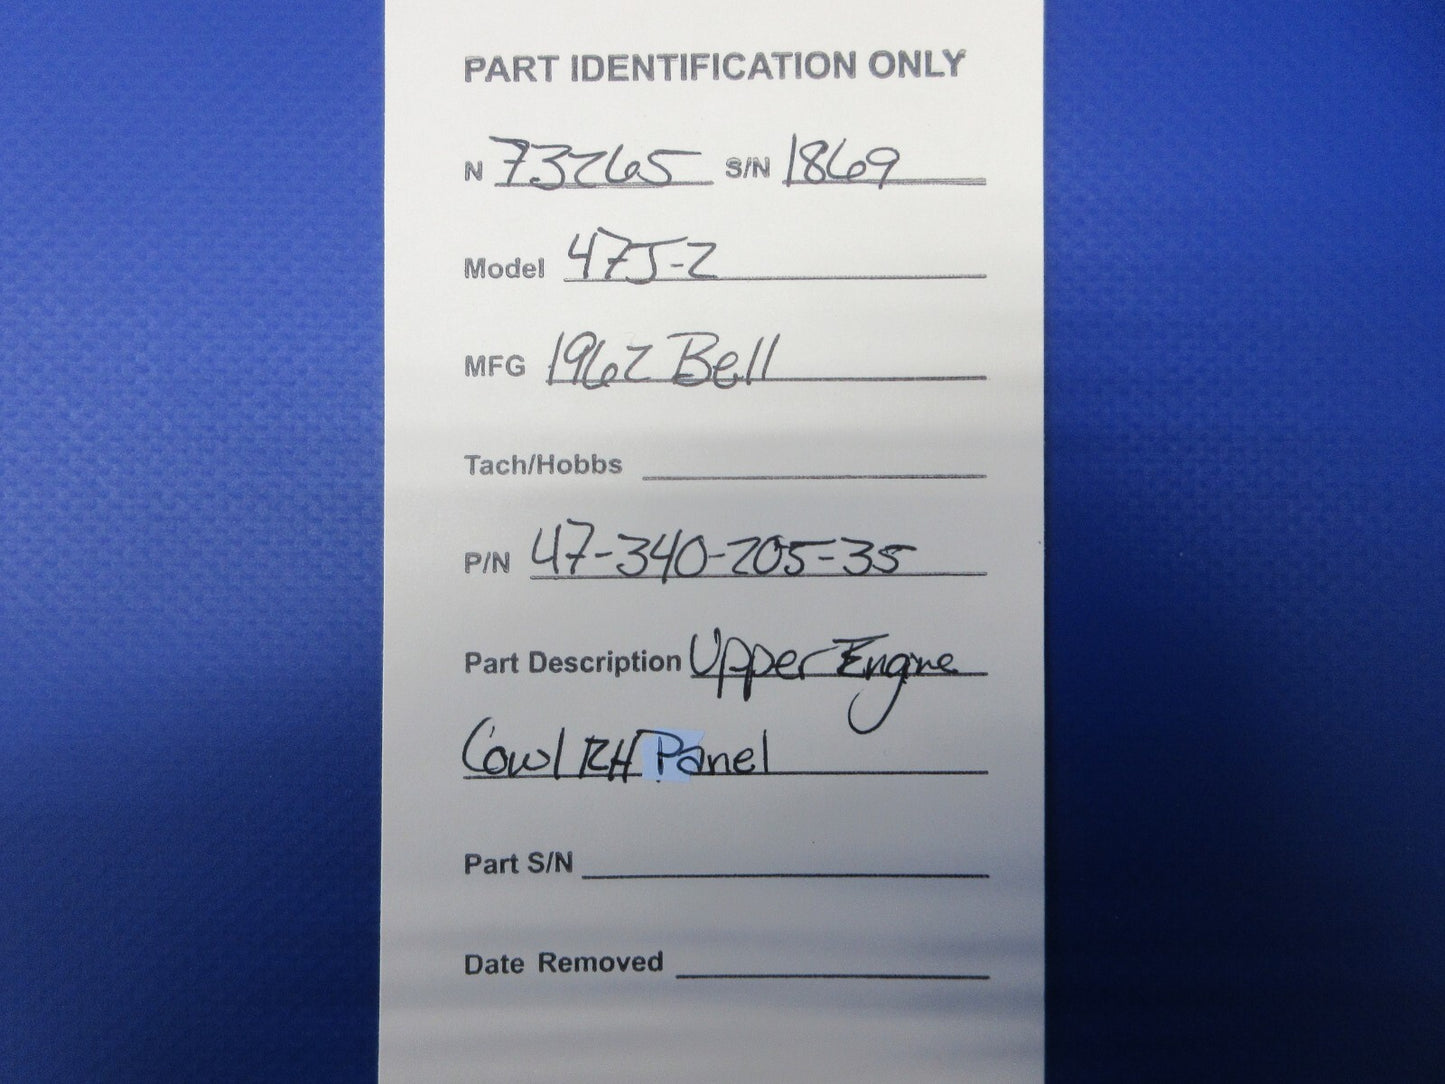 PART IDENTIFICATION ONLY
N 73265 S/N 1869
Model 47J-2
MFG 1962 Bell
Tach/Hobbs
P/N 47-340-205-35
Part Description Upper Engine
Cowl RH Panel
Part S/N
Date Removed